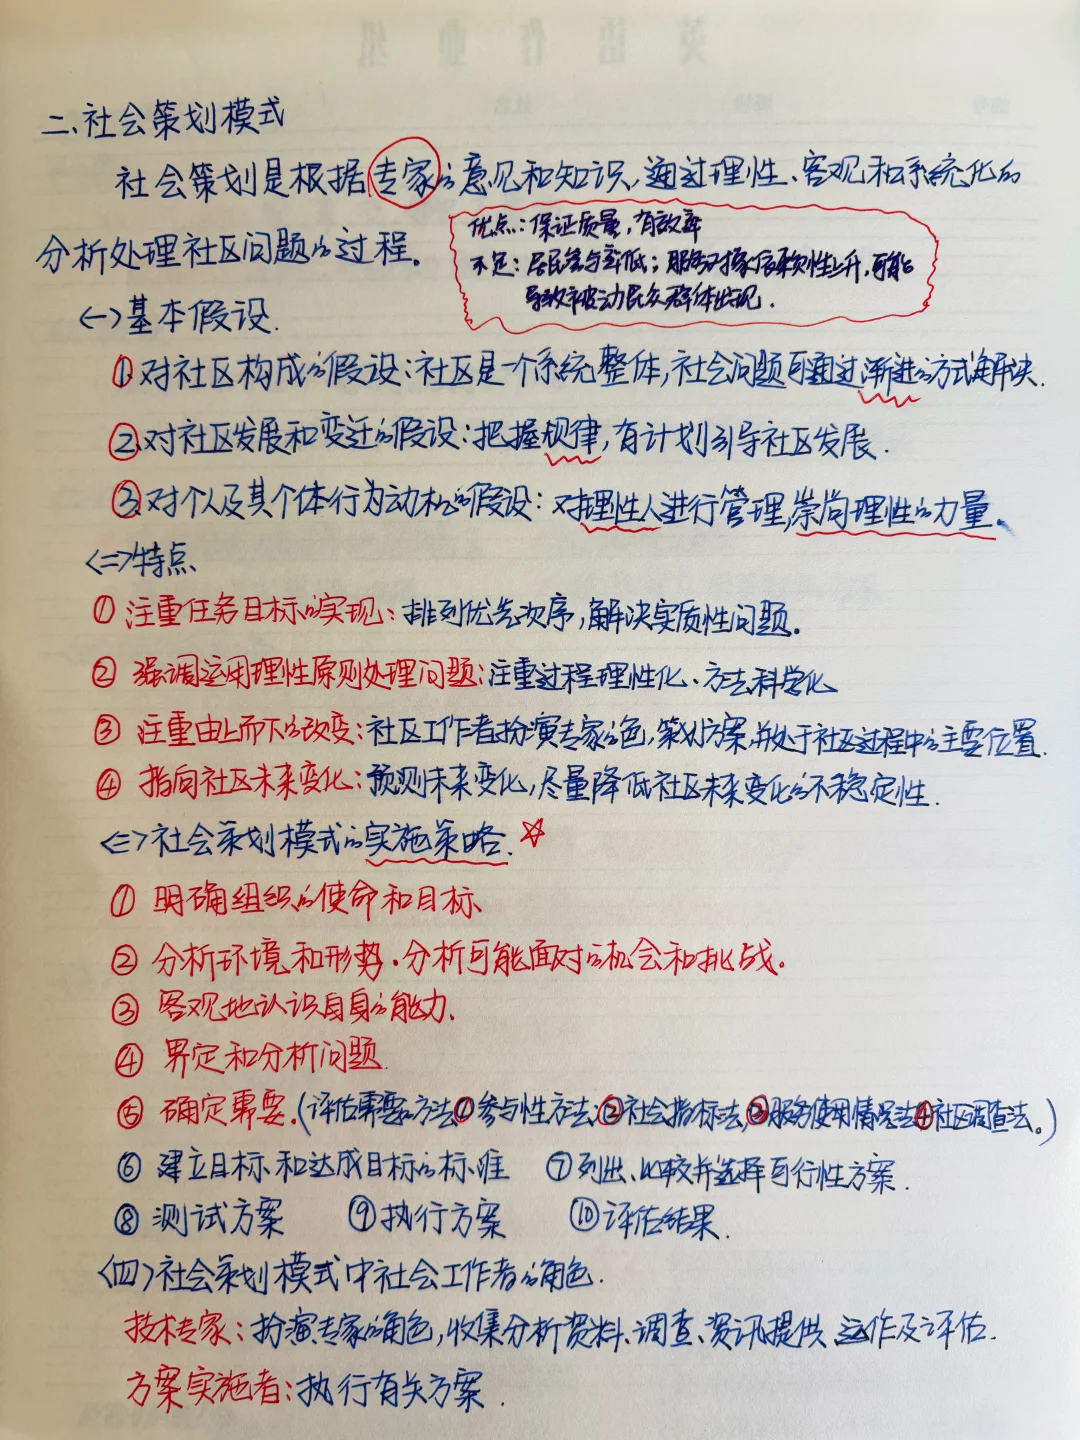 二、社会策划模式
社会策划是根据专家的意见和知识,通过理性、客观和系统化的
分析处理社区问题的过程。
优点:保证质量,有效率
不足:居民参与率低;服务对象依赖性上升,可能
导致被动民众群体出现.
<一>基本假设.
①对社区构成的假设:社区是一个系统整体,社会问题可通过渐进的方式解决.
②对社区发展和变迁的假设:把握规律,有计划引导社区发展.
③对个人及其个体行为动机的假设:对理性人进行管理,崇尚理性的力量。
<二>特点
①注重任务目标的实现:排列优先次序,解决实质性问题。
②强调运用理性原则处理问题:注重过程理性化、方法科学化
③注重由上而下的改变:社区工作者扮演专家角色,策划方案,并处于社区过程中的主要位置.
④指向社区未来变化:预测未来变化,尽量降低社区未来变化的不稳定性.
<三>社会策划模式的实施策略.☆
①明确组织的使命和目标
②分析环境和形势.分析可能面对的机会和挑战.
③客观地认识自身的能力.
④界定和分析问题
⑤确定需要.(评估需要的方法①参与性方法;②社会指标法;③服务使用情况法④社区调查法。)
⑥建立目标和达成目标的标准 ⑦列出、比较并选择可行性方案.
⑧测试方案 ⑨执行方案 ⑩评估结果.
<四>社会策划模式中社会工作者的角色.
技术专家:扮演专家的角色,收集分析资料、调查、资讯提供、运作及评估.
方案实施者:执行有关方案.